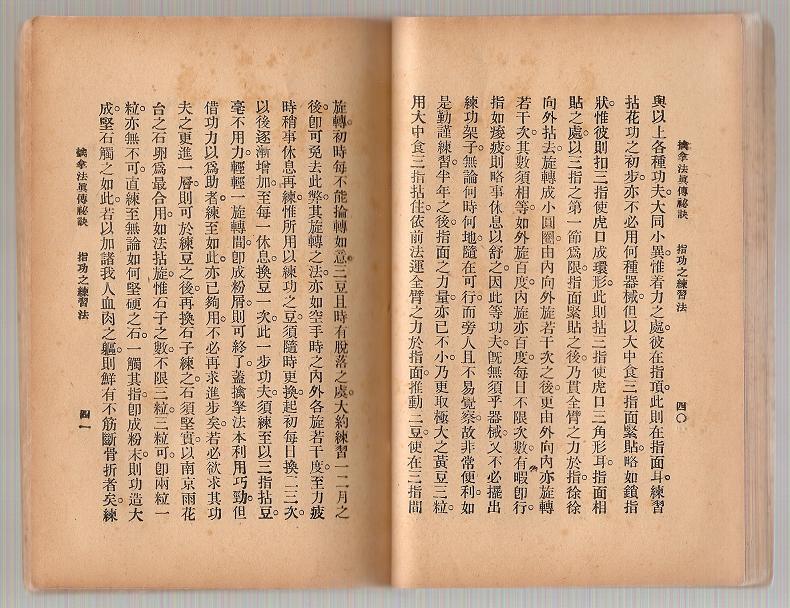 擒拿法眞傳祕訣　指功之練習法　四〇
與以上各種功夫。大同小異。惟着力之處。彼在指頂。此則在指面耳。練習
拈花功之初步。亦不必用何種器械。但以大中食三指面緊貼。略如鎖指
狀。惟彼則扣三指使虎口成環形。此則拈三指使虎口三角形耳。指面相
貼之處。以三指之第一節爲限。指面緊貼之後。乃貫全臂之力於指。徐徐
向外拈去。旋轉成小圓圈。由內向外旋若干次之後。更由外向內。亦旋轉
若干次。其數須相等。如外旋百度。內旋亦百度。每日不限次數。有暇即行。
指如痠疲。則略事休息以舒之。因此等功夫。旣無須乎器械。又不必擺出
練功架子。無論何時何地。隨在可行。而旁人且不易覺察。故非常便利。如
是勤謹練習。半年之後。指面之力量。亦已不小。乃更取極大之黃豆三粒。
用大中食三指拈住。依前法運全臂之力於指面。推動三豆。使在三指間
旋轉。初時每不能掄轉如意。三豆且時有脫落之虞。大約練習一二月之
後。卽可免去此弊。其旋轉之法。亦如空手時之內外各旋若干度。至力疲
時。稍事休息再練。惟所用以練功之豆。須隨時更換。起初每日換二三次。
以後逐漸增加。至每一休息。換豆一次。此一步功夫。須練至以三指拈豆。
毫不用力。輕輕一旋轉間。卽成粉屑。則可終了。蓋擒拿法本利用巧勁。但
借功力以爲助者。練至如此。亦已夠用。不必再求進步矣。若必欲求其功
夫之更進一層。則可於練豆之後。再換石子練之。石須堅實。以南京雨花
台之石卵爲最合用。如法拈旋。惟石子之數不限三粒。三粒可。卽兩粒一
粒亦無不可。直練至無論如何堅硬之石。一觸其指。卽成粉末。則功造大
成。堅石觸之如此。若以加諸我人血肉之軀。則鮮有不筋斷骨折者矣。練
擒拿法眞傳祕訣　指功之練習法　四一